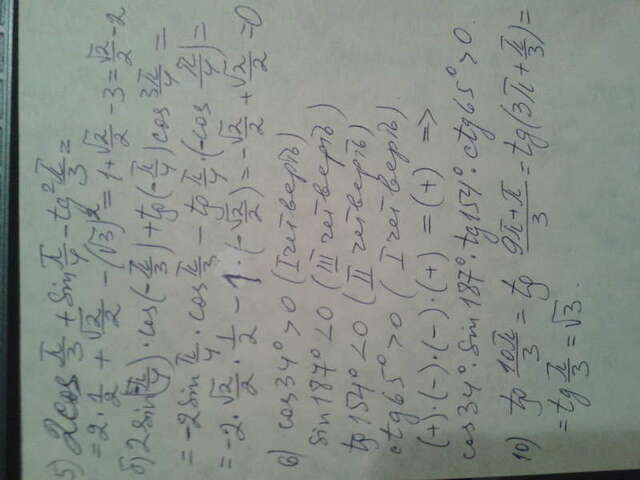 5) 2cos π/3 + sin π/4 - tg² π/3 =
= 2 · 1/2 + √2/2 - (√3)² = 1 + √2/2 - 3 = √2/2 - 2
б) 2sin(-π/4) · cos(-π/3) + tg(-π/4) cos 3π/4 =
= -2sin π/4 · cos π/3 - tg π/4 · (-cos π/4) =
= -2 · √2/2 · 1/2 - 1 · (-√2/2) = -√2/2 + √2/2 = 0
6) cos34° > 0 (I четверть)
sin187° < 0 (III четверть)
tg154° < 0 (II четверть)
ctg65° > 0 (I четверть)
(+) · (-) · (-) · (+) = (+) =>
cos34° · sin187° · tg154° · ctg65° > 0.
10) tg 10π/3 = tg 9π+π/3 = tg(3π + π/3) =
= tg π/3 = √3.